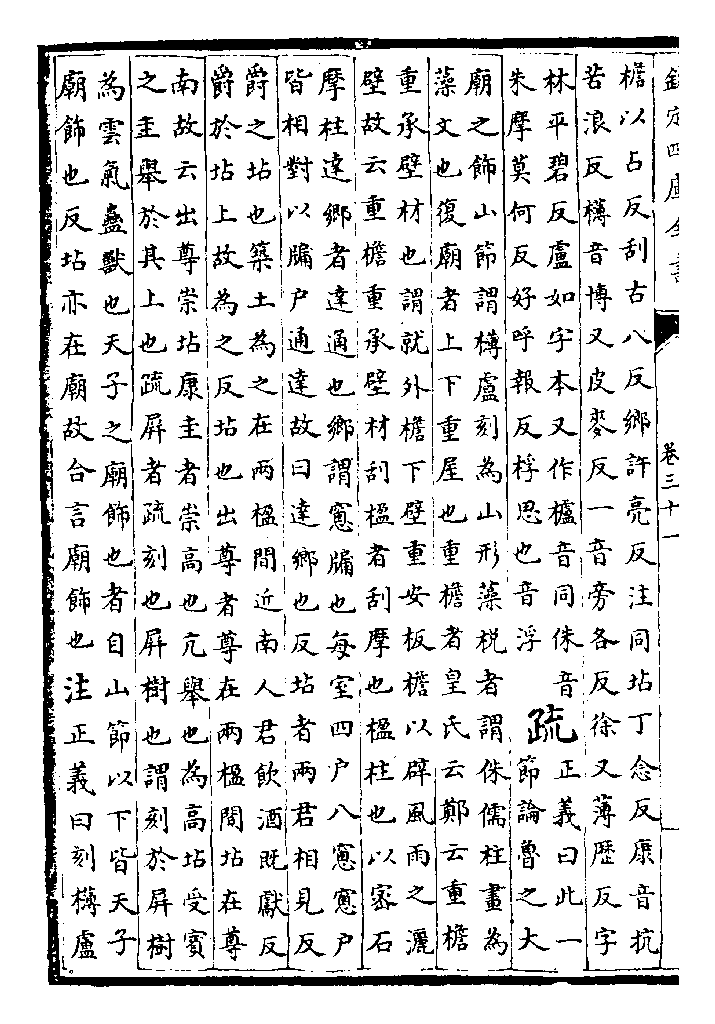 欽定四庫全書
卷三十一
檐以占反刮古八反鄉許亮反注同坫丁念反康音抗
苦浪反欂音博又皮麥反一音旁各反徐又薄歴反字
林平碧反盧如字本又作櫨音同侏音
朱摩莫何反好呼報反桴思也音浮
疏
正義曰此一
節論魯之大
廟之飾山節謂欂盧刻為山形藻梲者謂侏儒柱畫為
藻文也復廟者上下重屋也重檐者皇氏云鄭云重檐
重承壁材也謂就外檐下壁重安板檐以辟風雨之灑
壁故云重檐重承壁材刮楹者刮摩也楹柱也以宻石
摩柱達鄉者達通也鄉謂窻牖也每室四户八窻窻户
皆相對以牖户通達故曰達鄉也反坫者兩君相見反
爵之坫也築土為之在兩楹間近南人君飲酒既獻反
爵於坫上故為之反坫也出尊者尊在兩楹間坫在尊
南故云出尊崇坫康圭者崇高也亢舉也為高坫受賓
之圭舉於其上也疏屏者疏刻也屏樹也謂刻於屏樹
為雲氣蟲獸也天子之廟飾也者自山節以下皆天子
廟飾也反坫亦在廟故合言廟飾也注正義曰刻欂盧